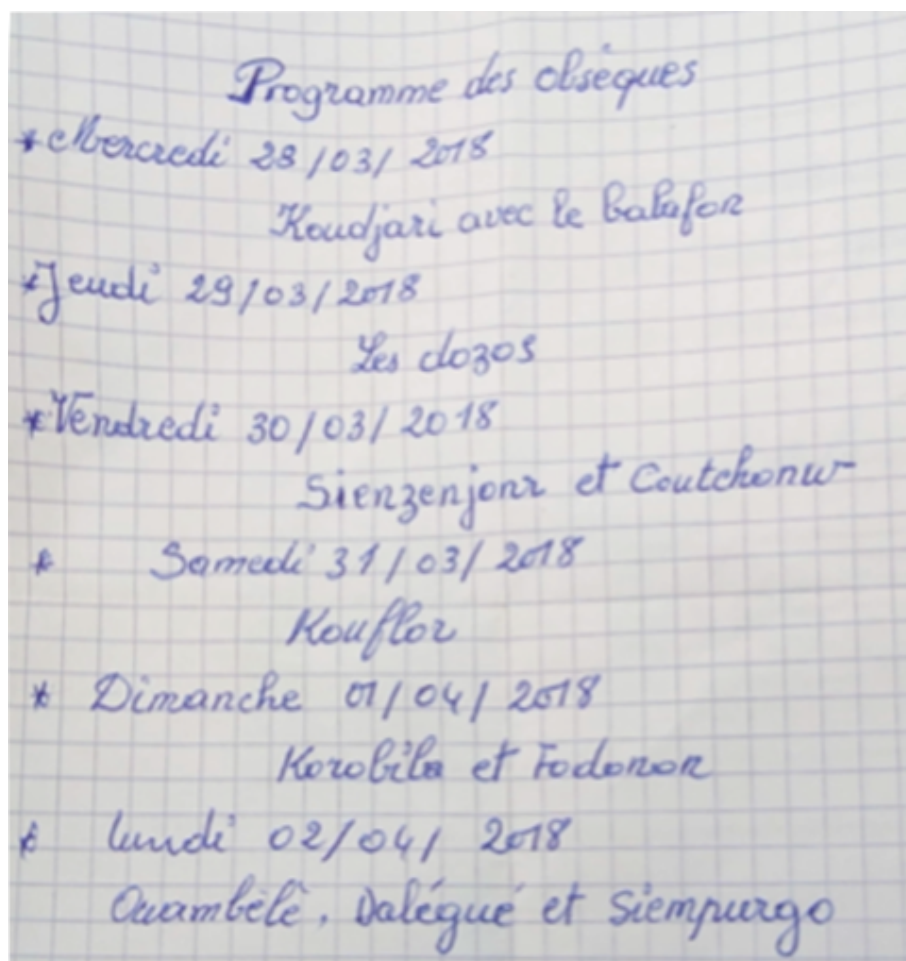 Programme des obsèques
* Mercredi 28/03/2018
Koudjari avec le balafon
* Jeudi 29/03/2018
Les dozos
* Vendredi 30/03/2018
Sienzenjonr et
* Samedi 31/03/2018
Kouflor
* Dimanche 01/04/2018
Korobila et Fodonon
* lundi 02/04/2018
Ouambélè, Dalégué et Siempurgo